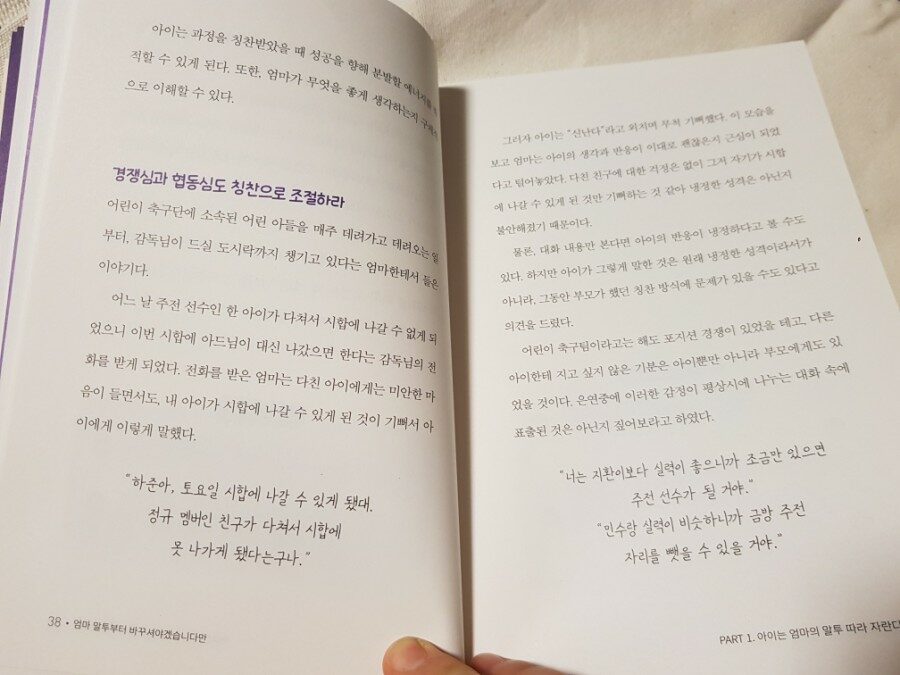 아이는 과정을 칭찬받았을 때 성공을 향해 분발할 에너지를
적할 수 있게 된다. 또한, 엄마가 무엇을 좋게 생각하는지
으로 이해할 수 있다.
경쟁심과 협동심도 칭찬으로 조절하라
어린이 축구단에 소속된 어린 아들을 매주 데려가고 데려오는 일
부터, 감독님이 드실 도시락까지 챙기고 있다는 엄마한테서 들은
이야기다.
어느 날 주전 선수인 한 아이가 다쳐서 시합에 나갈 수 없게 되
었으니 이번 시합에 아드님이 대신 나갔으면 한다는 감독님의 전
화를 받게 되었다. 전화를 받은 엄마는 다친 아이에게는 미안한 마
음이 들면서도, 내 아이가 시합에 나갈 수 있게 된 것이 기뻐서 아
이에게 이렇게 말했다.
"하준아, 토요일 시합에 나갈 수 있게 됐대.
정규 멤버인 친구가 다쳐서 시합에
못 나가게 됐다는구나."
38 • 엄마 말투부터 바꾸셔야겠습니다만
그러자 아이는 "신난다"라고 외치며 무척 기뻐했다. 이 모습을
보고 엄마는 아이의 생각과 반응이 이대로 괜찮은지 근심이 되었
다고 털어놓았다. 다친 친구에 대한 걱정은 없이 그저 자기가 시합
에 나갈 수 있게 된 것만 기뻐하는 것 같아 냉정한 성격은 아닌지
불안해졌기 때문이다.
물론, 대화 내용만 본다면 아이의 반응이 냉정하다고 볼 수도
있다. 하지만 아이가 그렇게 말한 것은 원래 냉정한 성격이라서가
아니라, 그동안 부모가 했던 칭찬 방식에 문제가 있을 수도 있다고
의견을 드렸다.
어린이 축구팀이라고는 해도 포지션 경쟁이 있었을 테고, 다른
아이한테 지고 싶지 않은 기분은 아이뿐만 아니라 부모에게도 있
었을 것이다. 은연중에 이러한 감정이 평상시에 나누는 대화 속에
표출된 것은 아닌지 짚어보라고 하였다.
"너는 지환이보다 실력이 좋으니까 조금만 있으면
주전 선수가 될 거야."
"민수랑 실력이 비슷하니까 금방 주전
자리를 뺏을 수 있을 거야."
PART 1. 아이는 엄마의 말투 따라 자란다